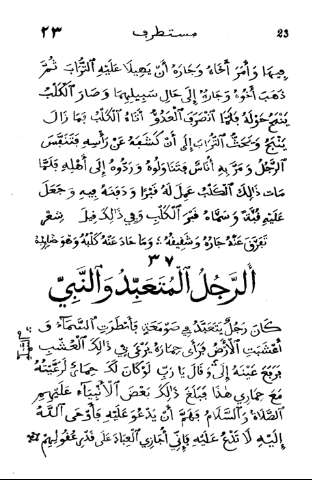 ٢٣ مستطرف 23
فِيهَا وَأَمَرَ أَخَاهُ وَجَارَهُ أَنْ يَهِيلَا عَلَيْهِ التُّرَابَ ثُمَّ
ذَهَبَ أَخُوهُ وَجَارُهُ إِلَى حَالِ سَبِيلِهِمَا وَصَارَ الْكَلْبُ
يَنْبَحُ حَوْلَهُ فَلَمَّا انْصَرَفَ الْعَدُوُّ أَتَاهُ الْكَلْبُ فَمَا زَالَ
يَنْبَحُ وَيَبْحَثُ التُّرَابَ إِلَى أَنْ كَشَفَهُ عَنْ رَأْسِهِ فَتَنَفَّسَ
الرَّجُلُ وَمَرَّ بِهِ أُنَاسٌ فَتَنَاوَلُوهُ وَرَدُّوهُ إِلَى أَهْلِهِ فَلَمَّا
مَاتَ ذَالِكَ الْكَلْبُ عَمِلَ لَهُ قَبْرًا وَدَفَنَهُ فِيهِ وَجَعَلَ
عَلَيْهِ قُبَّةً وَسَمَّاهُ قَبْرَ الْكَلْبِ وَفِي ذَالِكَ قِيلَ شِعْر
تَفَرَّقَ عَنْهُ جَارُهُ وَشَقِيقُهُ ۞ وَمَا حَادَ عَنْهُ كَلْبُهُ وَهْوَ ضَارِبُهْ
٣٧
الرَّجُلُ الْمُتَعَبِّدُ وَالنَّبِيّ
كَانَ رَجُلٌ يَتَعَبَّدُ فِي صَوْمَعَةٍ فَأَمْطَرَتِ السَّمَاءُ وَ
أَعْشَبَتِ الْأَرْضُ فَرَأَى حِمَارَهُ يَرْعَى فِي ذَالِكَ الْعُشْبِ
فَرَفَعَ عَيْنَهُ إِلَى وَقَالَ يَا رَبِّ لَوْ كَانَ لَكَ حِمَارٌ لَرَعَيْتُهُ
السَّمَاءِ
مَعَ حِمَارِي هَذَا فَبَلَغَ ذَالِكَ بَعْضَ الْأَنْبِيَاءِ عَلَيْهِمُ
الصَّلَاةُ وَالسَّلَامُ فَهَمَّ أَنْ يَدْعُوَ عَلَيْهِ فَأَوْحَى اللَّهُ
إِلَيْهِ لَا تَدْعُ عَلَيْهِ فَإِنِّي أُجَازِي الْعِبَادَ عَلَى قَدْرِ عُقُولِهِمْ